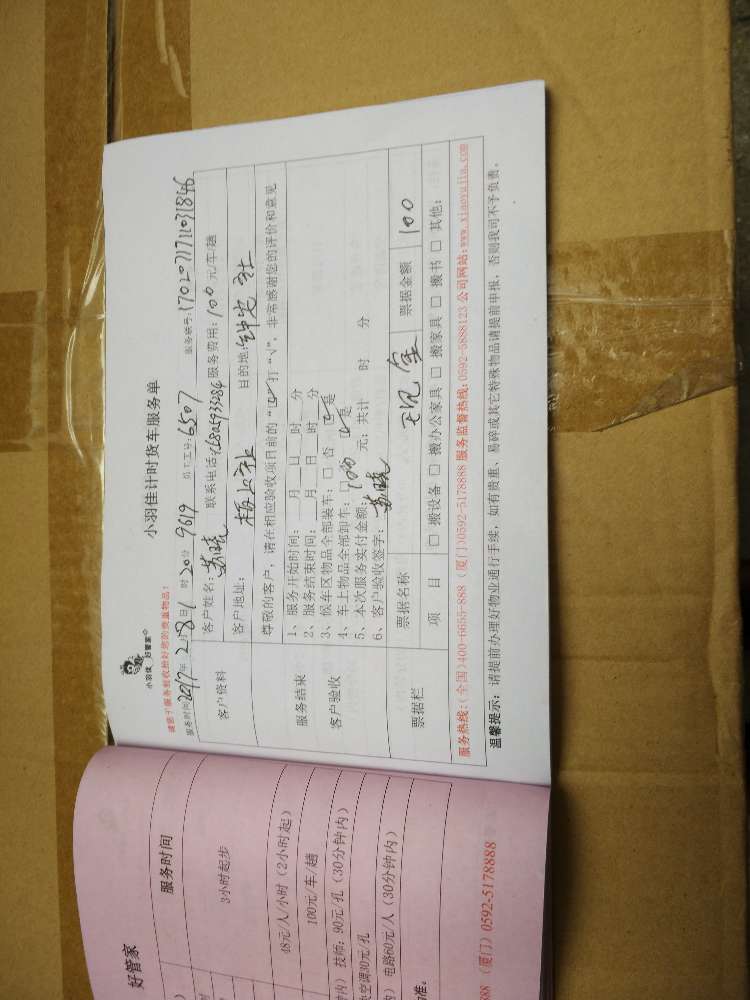 小羽佳 好管家
小羽佳计时货车服务单
请您于服务前收拾好您的贵重物品!
服务时间:2017年2月8日 时20分 9619 员工工号:6507 服务编号:
客户资料
客户姓名:苏晓 联系电话: 服务费用:100元/车/趟
客户地址: 目的地:
尊敬的客户,请在相应验收项目前的“□”打“√”,非常感谢您的评价和意见
服务结束
客户验收
1、服务开始时间: 月 日 时 分
2、服务结束时间: 月 日 时 分
3、候车区物品全部装车:□否 □是
4、车上物品全部卸车:□ □是
5、本次服务实付金额:100元;共计 时 分
6、客户验收签字:苏晓
票据栏
票据名称 现金 票据金额 100
项 目 □搬设备 □搬办公家具 □搬家具 □搬书 □其他:
服务热线:(全国)400-6655-888 (厦门)0592-5178888 服务监督热线:0592-5888123 公司网站:www.xiaoyujia.com
温馨提示:请提前办理好物业通行手续,如有贵重、易碎或其它特殊物品请提前申报,否则我司不予负责。
好管家
服务时间
3小时起步
48元/人/小时(2小时起)
100元/车/趟
技师:90元/孔(30分钟内)
空调30元/孔
电路60元/人(30分钟内)
888 (厦门)0592-5178888